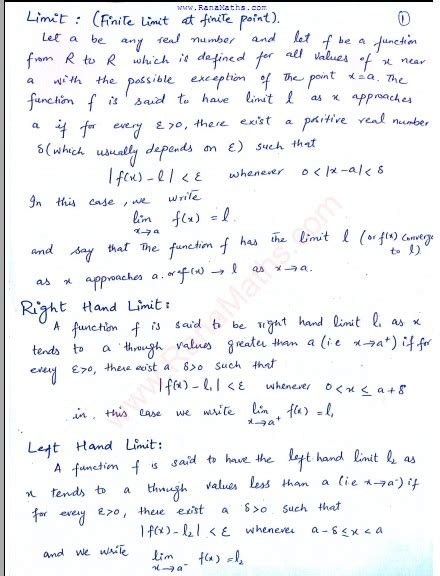 www.RanaMaths.com
Limit : (Finite Limit at finite point). ①
Let a be any real number and let f be a function
from R to R which is defined for all values of x near
a with the possible exception of the point x=a. The
function f is said to have limit l as x approaches
a if for every ε>0, there exist a positive real number
δ (which usually depends on ε) such that
|f(x) - l| < ε whenever 0 < |x-a| < δ
In this case, we write
lim f(x) = l.
x→a
and say that the function f has the limit l (or f(x) converge
to l)
as x approaches a. or f(x) → l as x→a.
Right Hand Limit:
A function f is said to be right hand limit l₁ as x
tends to a through values greater than a (i.e x→a⁺) if for
every ε>0, there exist a δ>0 such that
|f(x) - l₁| < ε whenever 0 < x ≤ a+δ
in this case we write lim f(x) = l₁
x→a⁺
Left Hand Limit:
A function f is said to have the left hand limit l₂ as
x tends to a through values less than a (i.e x→a⁻) if
for every ε>0, there exist a δ>0 such that
|f(x) - l₂| < ε whenever a-δ ≤ x < a
and we write lim f(x) = l₂
x→a⁻
www.RanaMaths.com